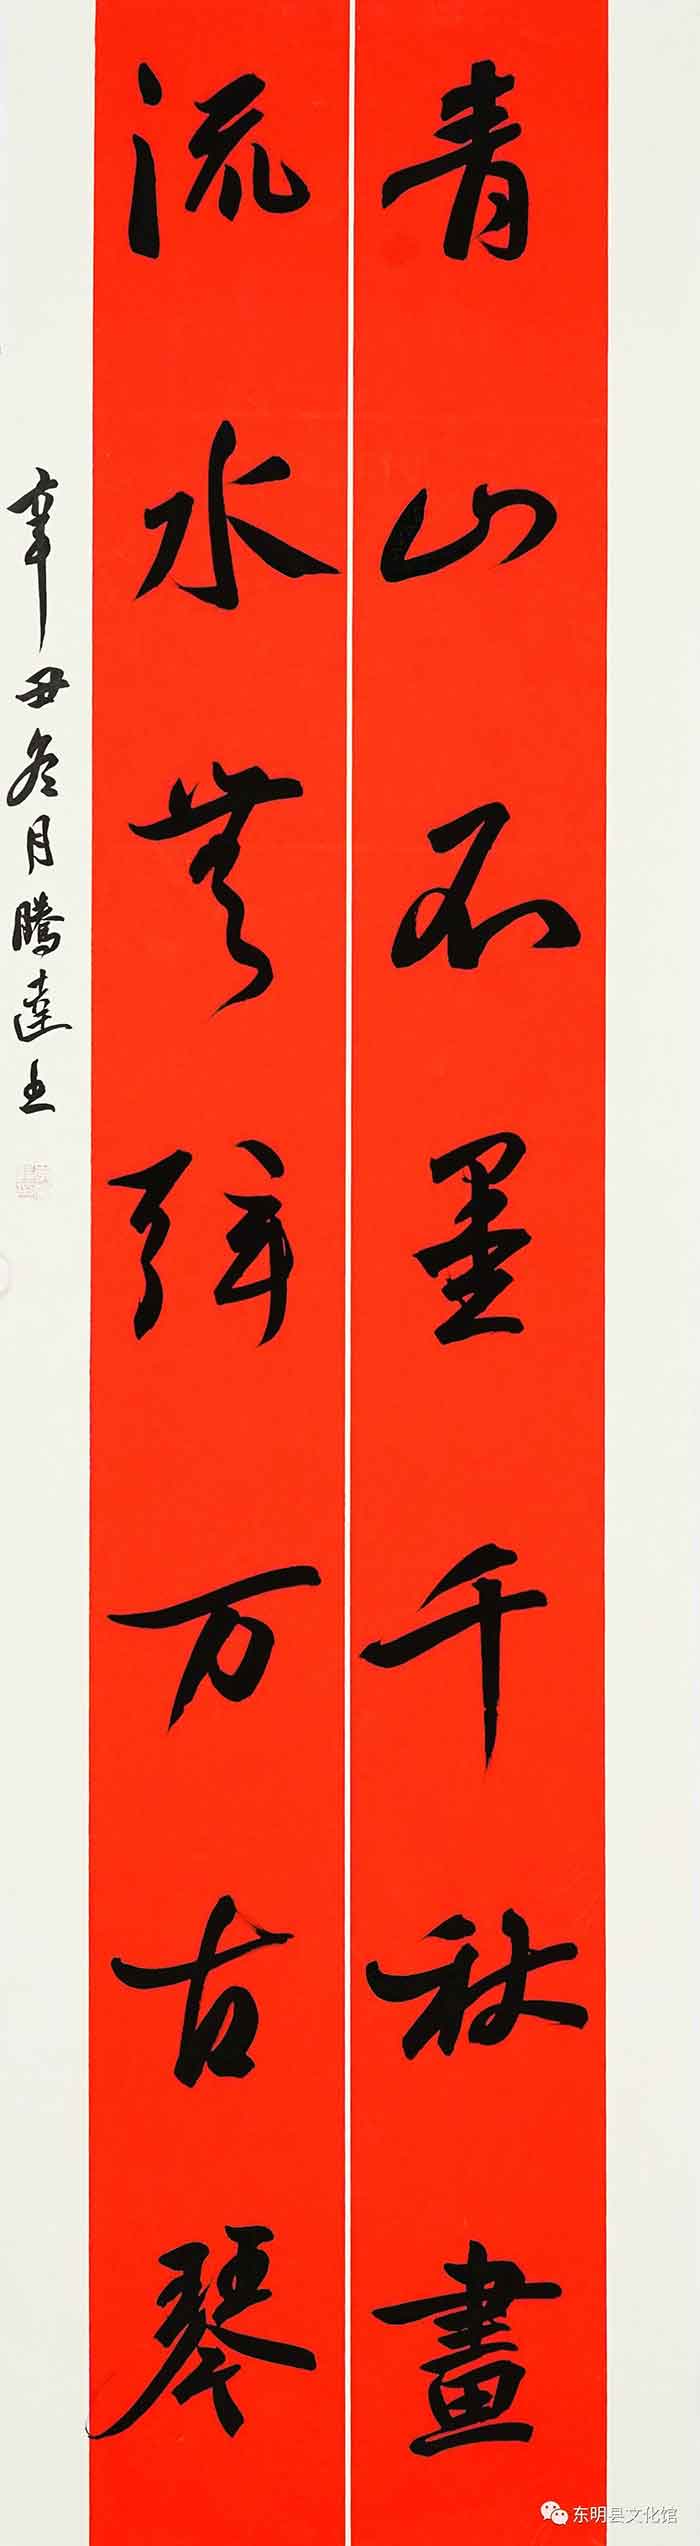 青山不墨千秋畫
流水無弦万古琴
辛丑冬月騰達书
东明县文化馆